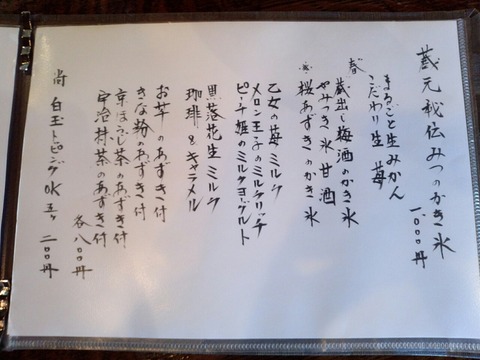 蔵元秘伝みつのかき氷
一、〇〇〇円
まるごと生みかん
こだわり生苺
春
蔵出し梅酒のかき氷
やみつき氷甘酒
桜あずきのかき氷
乙女の苺ミルク
メロン王子のミルクリッチ
ピーチ姫のミルクヨーグルト
黒落花生ミルク
珈琲&キャラメル
お芋のあずき付
きな粉のあずき付
京ほうじ茶のあずき付
宇治抹茶のあずき付
各八〇〇円
尚 白玉トッピングOK五ケ 二〇〇円